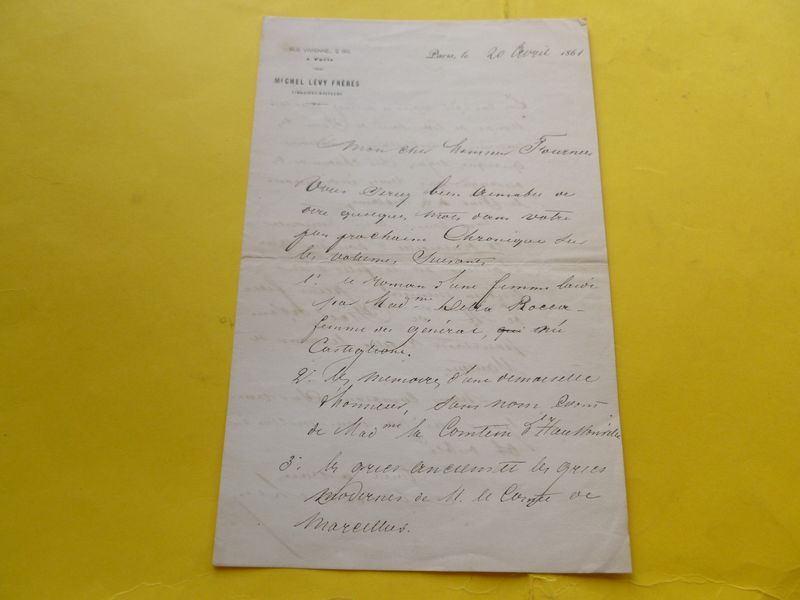 RUE VIVIENNE, 2 BIS,
à Paris
MICHEL LÉVY FRÈRES
LIBRAIRES-ÉDITEURS
Paris, le 20 Avril 1861
Mon cher monsieur Fournier
Vous seriez bien aimable de
dire quelques mots dans votre
plus prochaine Chronique sur
les volumes suivants
1° Le roman d'une femme laide
par Mad.me Della Rocca
femme du général, qui née
Castiglione.
2° les memoires d'une demoiselle
d'honneur, sans nom
de Mad.me la Comtesse d'Haussonville
3° les grecs anciens et les grecs
modernes de M. le Comte de
Marcellus.